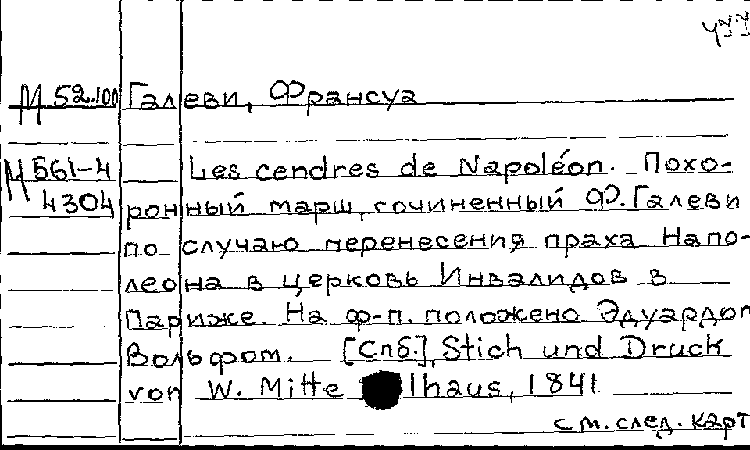 М 52.100 Галеви, Франсуа
М 561-4 Les cendres de Napoléon. Похо-
4304 ронный марш, сочиненный Ф. Галеви
по случаю перенесения праха Напо-
леона в церковь Инвалидов в
Париже. На ф-п. положено Эдуардом
Вольфом. [Спб.], Stich und Druck
von W. Mitte lhaus, 1841
см. след. карт